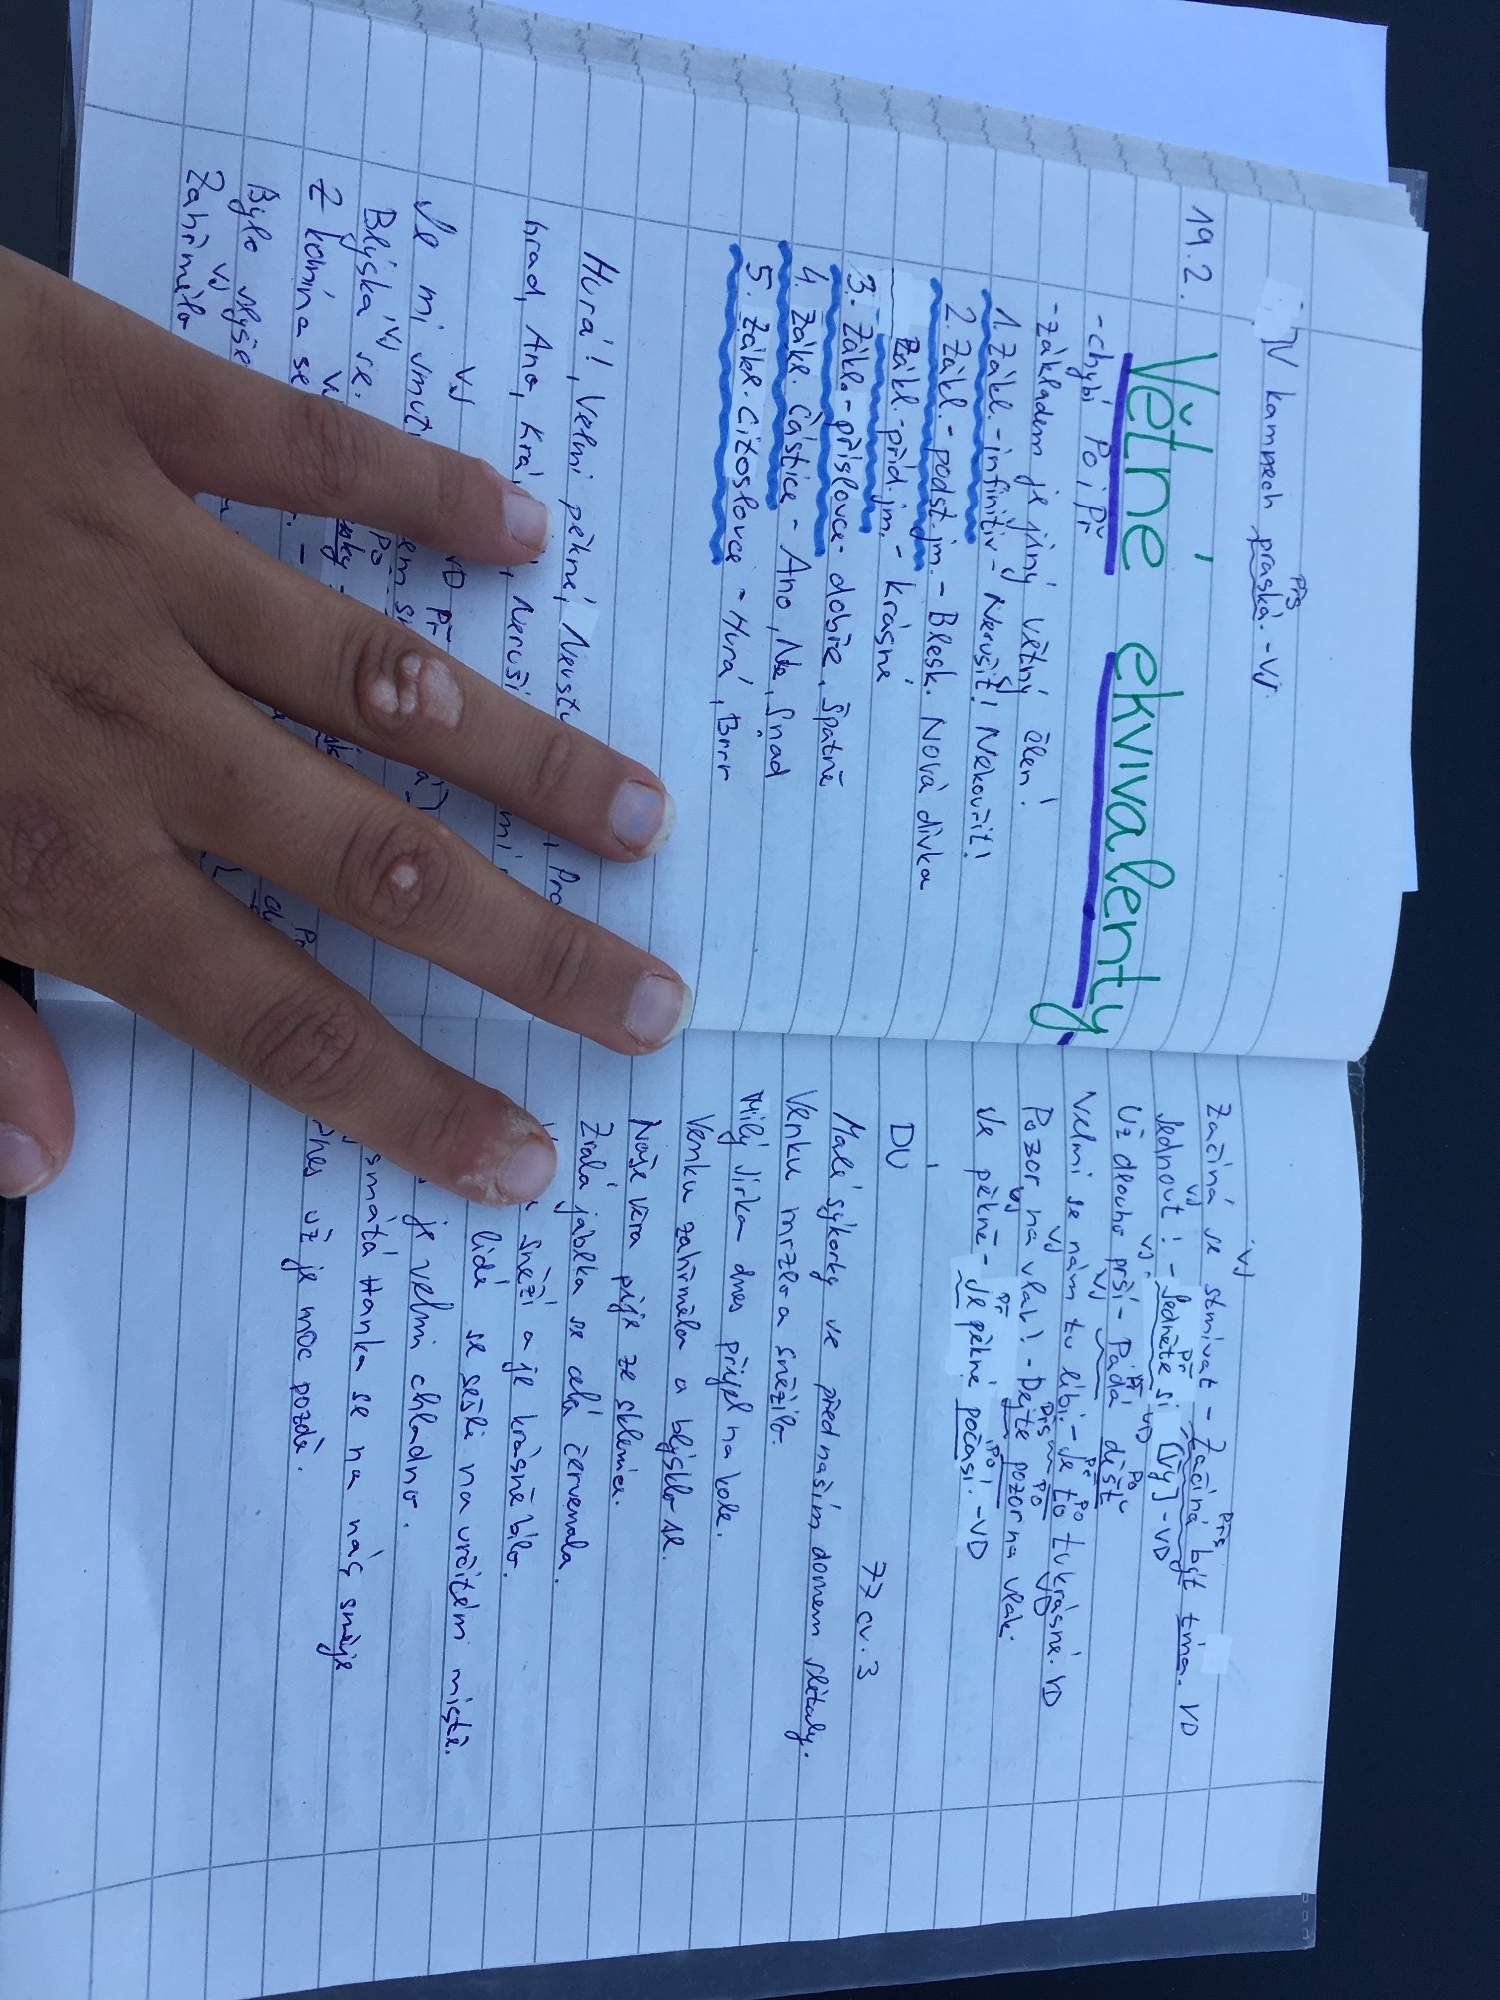 V kamnech praská. - VJ
Přs
19.2.
Větné ekvivalenty
- chybí Po i Př
- základem je jiný větný člen!
1. Zákl. - infinitiv - Nerušit! Nekouřit!
2. Zákl. - podst. jm. - Blesk. Nová dívka
Zákl. - příd. jm. - krásné
3. Zákl. - příslovce - dobře, špatně
4. Zákl. částice - Ano, Ne, Snad
5. Zákl. citoslovce - Hurá, Brrr
Hurá!, Velmi pěkné,
hrad, Ano,
VJ VD Př
Je mi smut
VJ
Blýská se.
Po
Z komína se
Bylo slyše
VJ
Zahřmělo
VJ Přs
Začíná se stmívat - Začíná být tma. VD
VJ Př
Jednout! - Jedněte si [Vy] - VD
VJ Př VD Po
Už dlouho prší - Padá déšť
VJ VJ Př Po
Velmi se nám tu líbí. - Je to tu krásné. VD
VJ Přs Po VD
Pozor na vlak! - Dejte pozor na vlak.
VJ Př Po
Je pěkně - Je pěkné počasí. - VD
DÚ 77 cv. 3
Malé sýkorky ve před naším domem slétaly.
Venku mrzlo a sněžilo.
Milý Jirka dnes přijel na kole.
Venku zahřmělo a blýsklo se.
Naše Věra pije ze sklenice.
Zralá jablka se celá červenala.
sněží a je krásně bílo.
lidé se sešli na určitém místě.
je velmi chladno.
smátá Hanka se na nás směje
nes už je moc pozdě.